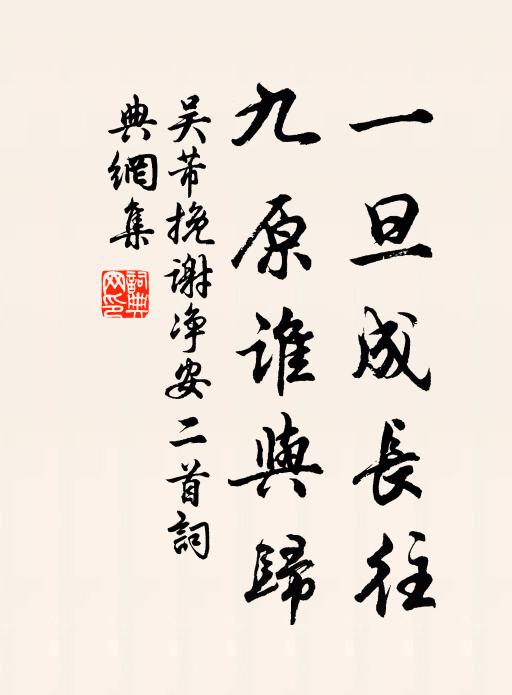 一旦成長往
九原誰與歸
吴芾挽谢净安二首詞
典網集
詞典
网印